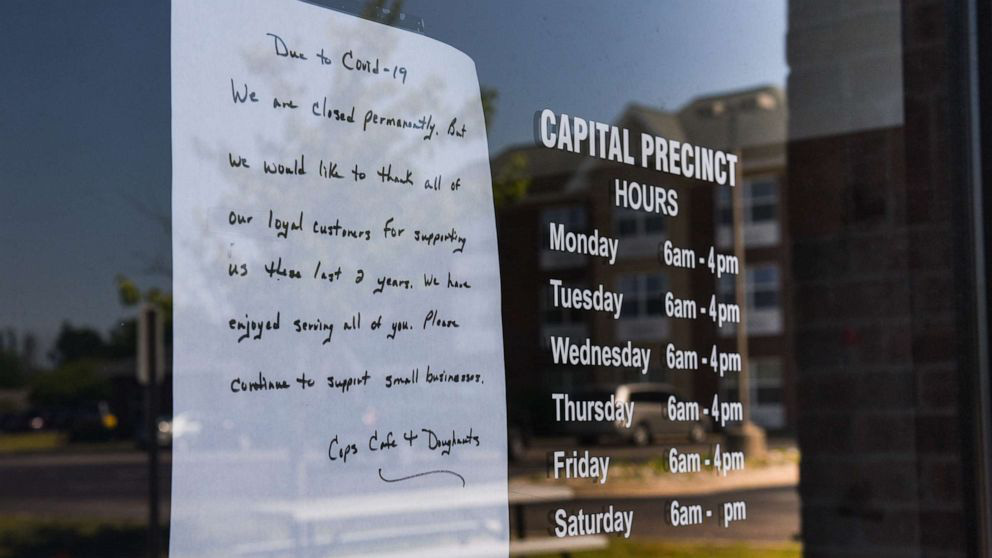 Due to Covid-19
We are closed permanently. But
we would like to thank all of
our loyal customers for supporting
us these last 2 years. We have
enjoyed serving all of you. Please
continue to support small businesses.
Cops Cafe + Doughnuts
CAPITAL PRECINCT
HOURS
Monday 6am - 4pm
Tuesday 6am - 4pm
Wednesday 6am - 4pm
Thursday 6am - 4pm
Friday 6am - 4pm
Saturday 6am - pm